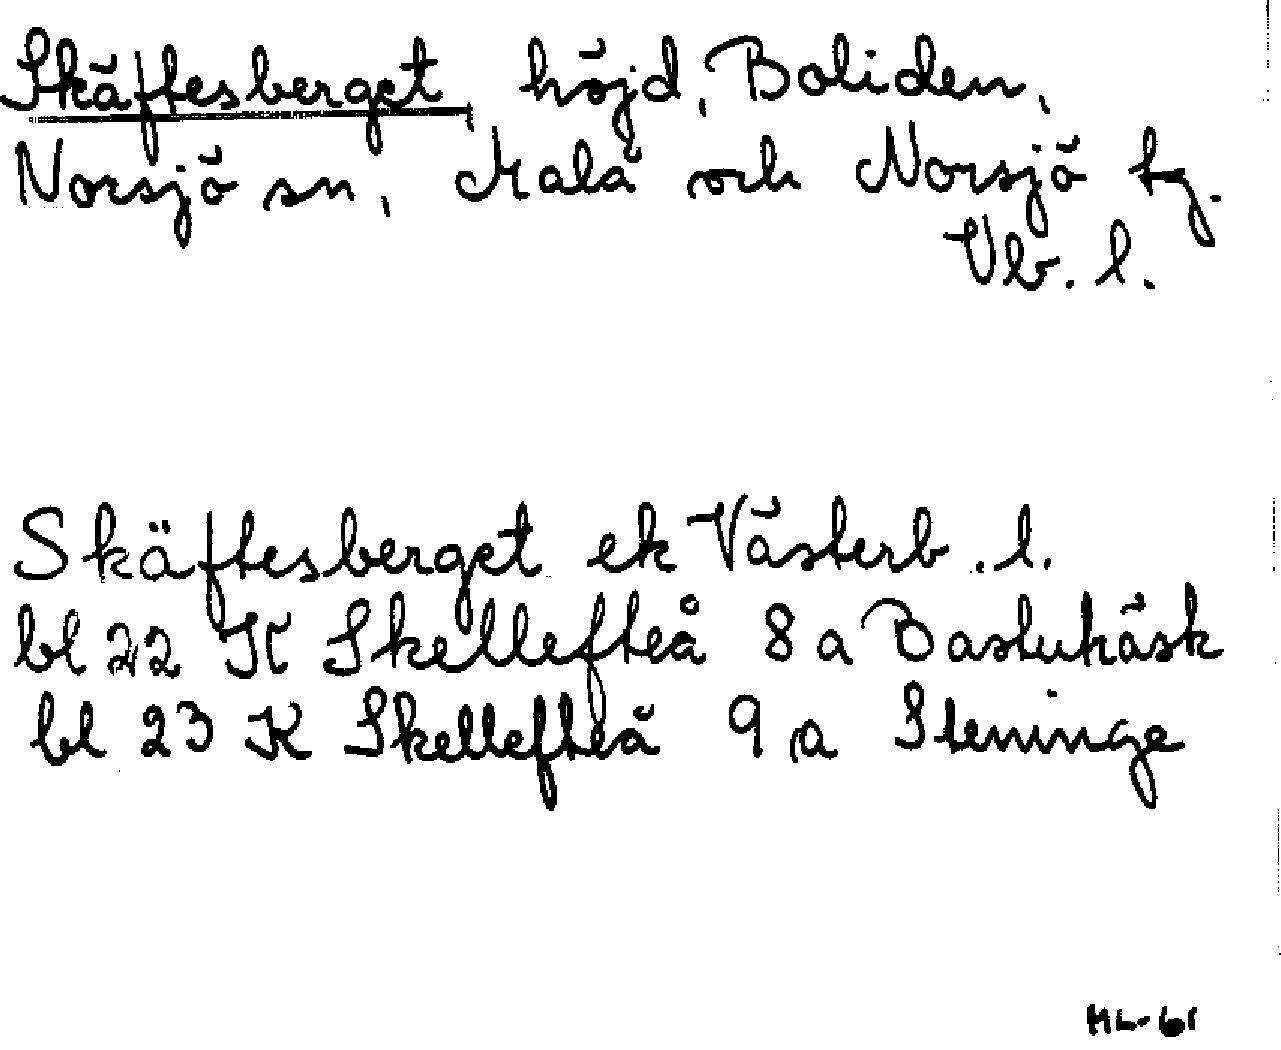 Skäftesberget höjd, Boliden,
Norsjö sn, Malå och Norsjö tg.
Vb. l.
Skäftesberget ek Västerb. l.
bl 22 K Skellefteå 8 a Bastuträsk
bl 23 K Skellefteå 9 a Steninge
HL-61